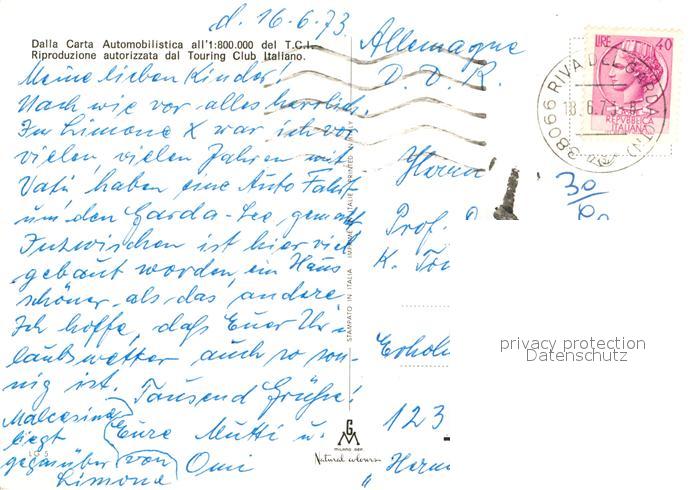 d. 16.6.73
Dalla Carta Automobilistica all'1:800.000 del T.C.I.
Riproduzione autorizzata dal Touring Club Italiano.
Meine lieben Kinder!
Nach wie vor alles herrlich.
In Limone X war ich vor
vielen, vielen Jahren mit
Vati, haben eine Auto Fahrt
um den Garda-See gemacht
Inzwischen ist hier viel
gebaut worden, ein Haus
schöner als das andere
Ich hoffe, daß Euer Ur-
laubswetter auch so son-
nig ist. Tausend Grüße!
Eure Mutti u.
Omi
Malcesine
liegt
gegenüber von
Limone
LG 5
STAMPATO IN ITALIA
PRINTED IN
G M
MILANO DEP.
Natural colours
Allemagne
D. D. R.
Herrn
Prof.
K.
123
" Herm
30
LIRE 40
REPVBBLICA
ITALIANA
38066 RIVA DEL GARDA (TN)
privacy protection
Datenschutz